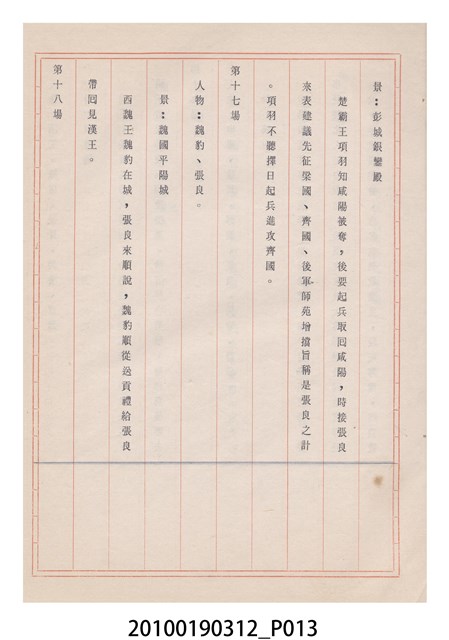 景：彭城銀鑾殿
楚霸王項羽知咸陽被奪，後要起兵取囘咸陽，時接張良
來表建議先征梁國、齊國、後軍師范增擋旨稱是張良之計
。項羽不聽擇日起兵進攻齊國。
第十七場
人物：魏豹、張良。
景：魏國平陽城
酉魏王魏豹在城，張良來順說，魏豹順從送貢禮給張良
帶囘見漢王。
第十八場
20100190312_P013